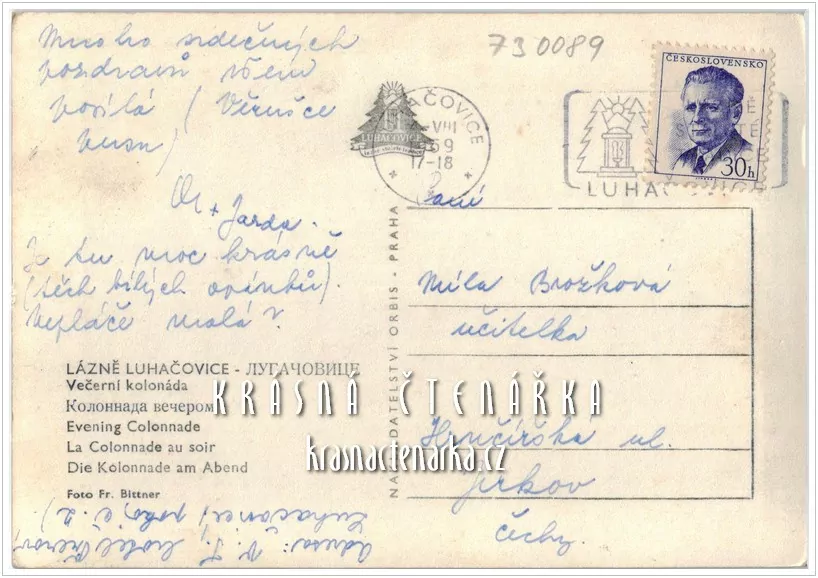 730089
Mnoho srdečných
pozdravů všem
posílá (Věrušce
pusu)
+ Jarda.
Je tu moc krásně
(těch bílých
Nepláče malá?
LÁZNĚ LUHAČOVICE - ЛУГАЧОВИЦЕ
Večerní kolonáda
Колоннада вечером
Evening Colonnade
La Colonnade au soir
Die Kolonnade am Abend
Foto Fr. Bittner
Adresa: V. hotel
Luhačovice, pokoj č. 2)
NAKLADATELSTVÍ ORBIS - PRAHA
LUHAČOVICE
AČOVICE
VIII
59
17-18
2
LUHAČOVICE
ČESKOSLOVENSKO
30h
Paní
Míla Brožková
učitelka
Hrnčířská ul.
Jirkov
Čechy.
KRÁSNÁ ČTENÁŘKA
krasnactenarka.cz